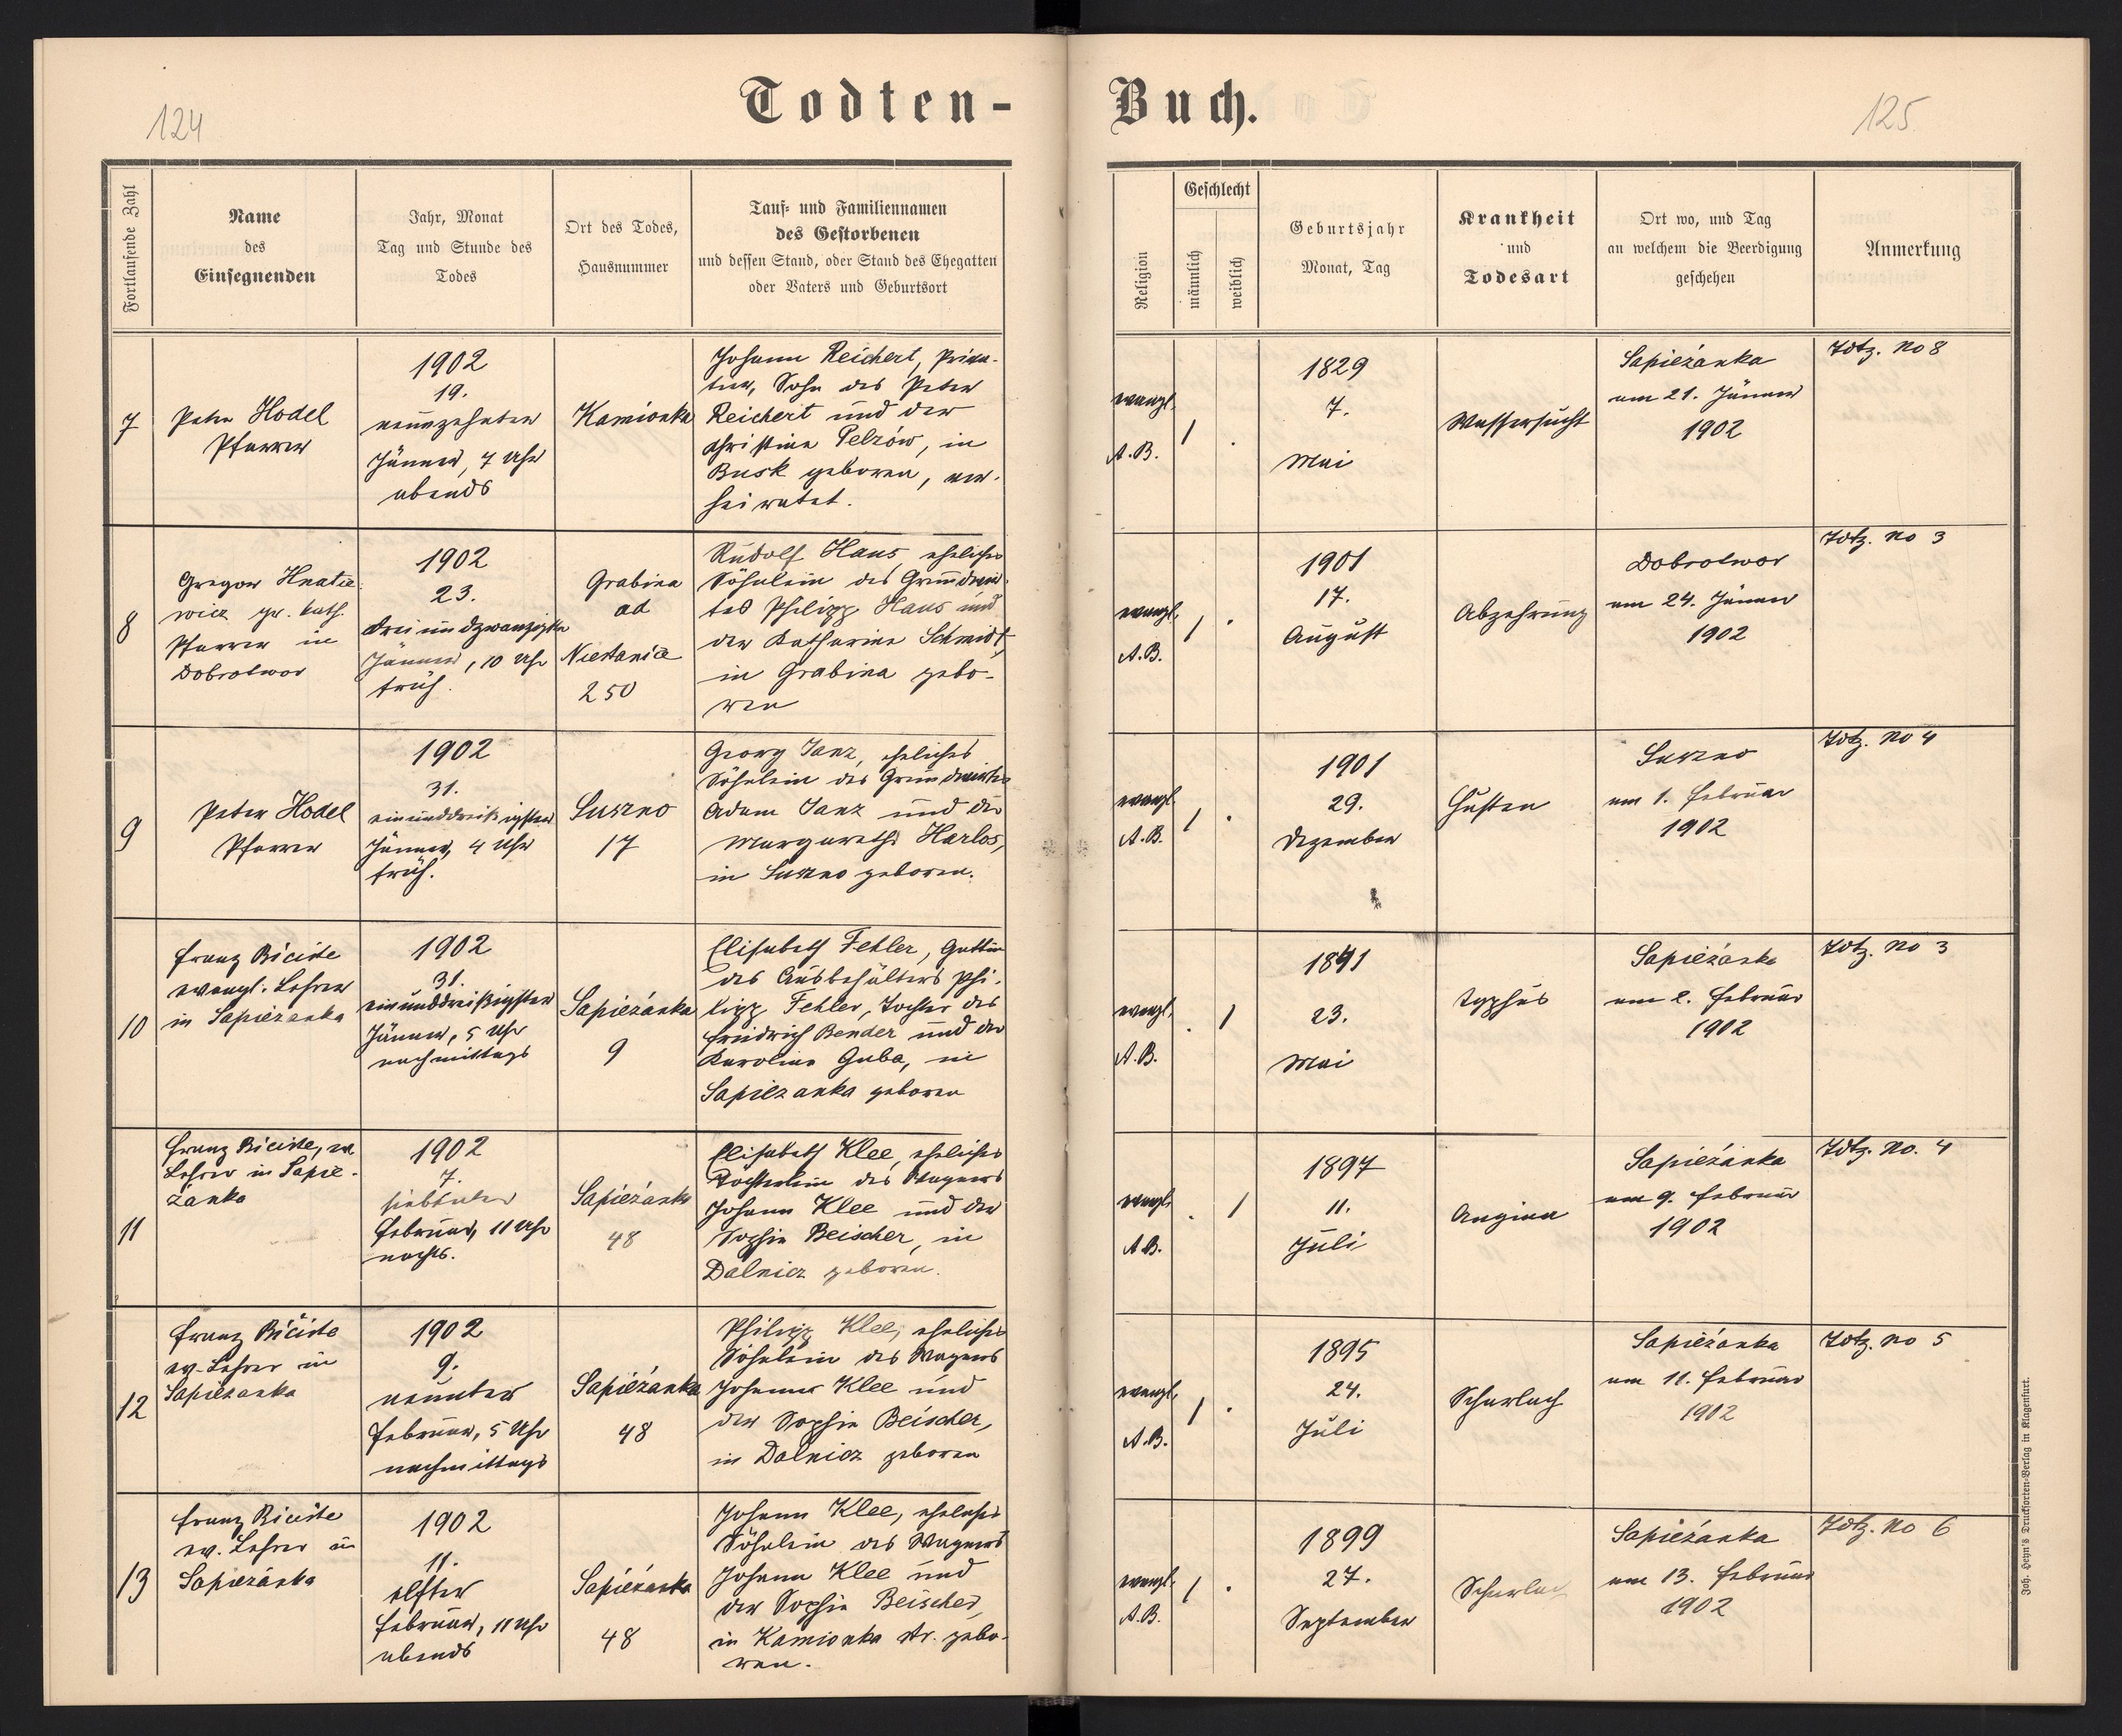 124
Todten-
Fortlaufende Zahl
Name
des
Einsegnenden
Jahr, Monat
Tag und Stunde des
Todes
Ort des Todes,
Hausnummer
Tauf- und Familiennamen
des Gestorbenen
und dessen Stand, oder Stand des Ehegatten
oder Vaters und Geburtsort
7
Peter Hodel
Pfarrer
1902
19.
neunzehnten
Jänner, 7 Uhr
abends
Kamionka
Johann Reichert, Priva-
tier, Sohn des Peter
Reichert und der
Christina Pelzów, in
Busk geboren, ver-
heiratet.
8
Gregor Hnatie
wicz gr. kath.
Pfarrer in
Dobrotwor
1902
23.
dreiundzwanzigsten
Jänner, 10 Uhr
früh.
Grabina
ad
Niestanice
250
Rudolf Haus, eheliches
Söhnlein des Grundwir-
tes Philipp Haus und
der Katharina Schmidt,
in Grabina gebo-
ren
9
Peter Hodel
Pfarrer
1902
31.
einunddreißigsten
Jänner, 4 Uhr
früh.
Suszno
17
Georg Janz, eheliches
Söhnlein des Grundwirtes
Adam Janz und der
Margaretha Harlos,
in Suszno geboren.
10
Franz Bičiste
evangl. Lehrer
in Sapieżanka
1902
31.
einunddreißigsten
Jänner, 5 Uhr
nachmittags
Sapieżanka
9
Elisabeth Fehler, Gattin
des Ausbehälters Phi-
lipp Fehler, Tochter des
Friedrich Bender und der
Karolina Guba, in
Sapiezanka geboren
11
Franz Bičiste, ev.
Lehrer in Sapie-
żanka
1902
7.
siebenten
Februar, 11 Uhr
nachts.
Sapieżanka
48
Elisabeth Klee, eheliches
Töchterlein des Wagners
Johann Klee und der
Sophie Beischer, in
Dalnicz geboren.
12
Franz Bičiste
ev. Lehrer in
Sapieżanka
1902
9.
neunten
Februar, 5 Uhr
nachmittags
Sapieżanka
48
Philipp Klee, eheliches
Söhnlein des Wagners
Johannes Klee und
der Sophie Beischer,
in Dalnicz geboren
13
Franz Bičiste
ev. Lehrer in
Sapieżanka
1902
11.
elften
Februar, 11 Uhr
abends
Sapieżanka
48
Johann Klee, eheliches
Söhnlein des Wagners
Johann Klee und
der Sophie Beischer,
in Kamionka str. gebo-
ren.
Buch.
125
Religion
Geschlecht
männlich
weiblich
Geburtsjahr
Monat, Tag
Krankheit
und
Todesart
Ort wo, und Tag
an welchem die Beerdigung
geschehen
Anmerkung
evangl.
A.B.
1
.
1829
7.
Mai
Wassersucht
Sapieżanka
am 21. Jänner
1902
Totz. no 8
evangl.
A.B.
1
.
1901
17.
August
Abzehrung
Dobrotwor
am 24. Jänner
1902
Totz. no 3
evangl.
A.B.
1
.
1901
29.
Dezember
Husten
Suszno
am 1. Februar
1902
Totz. no 4
evangl.
A.B.
.
1
1841
23.
Mai
Typhus
Sapieżanka
am 2. Februar
1902
Totz. no 3
evangl.
A.B.
.
1
1897
11.
Juli
Angina
Sapieżanka
am 9. Februar
1902
Totz. no. 4
evangl.
A.B.
1
.
1895
24.
Juli
Scharlach
Sapieżanka
am 11. Februar
1902
Totz. no 5
evangl.
A.B.
1
.
1899
27.
September
Scharlach
Sapieżanka
am 13. Februar
1902
Totz. no 6
Joh. Heyn's Drucksorten-Verlag in Klagenfurt.